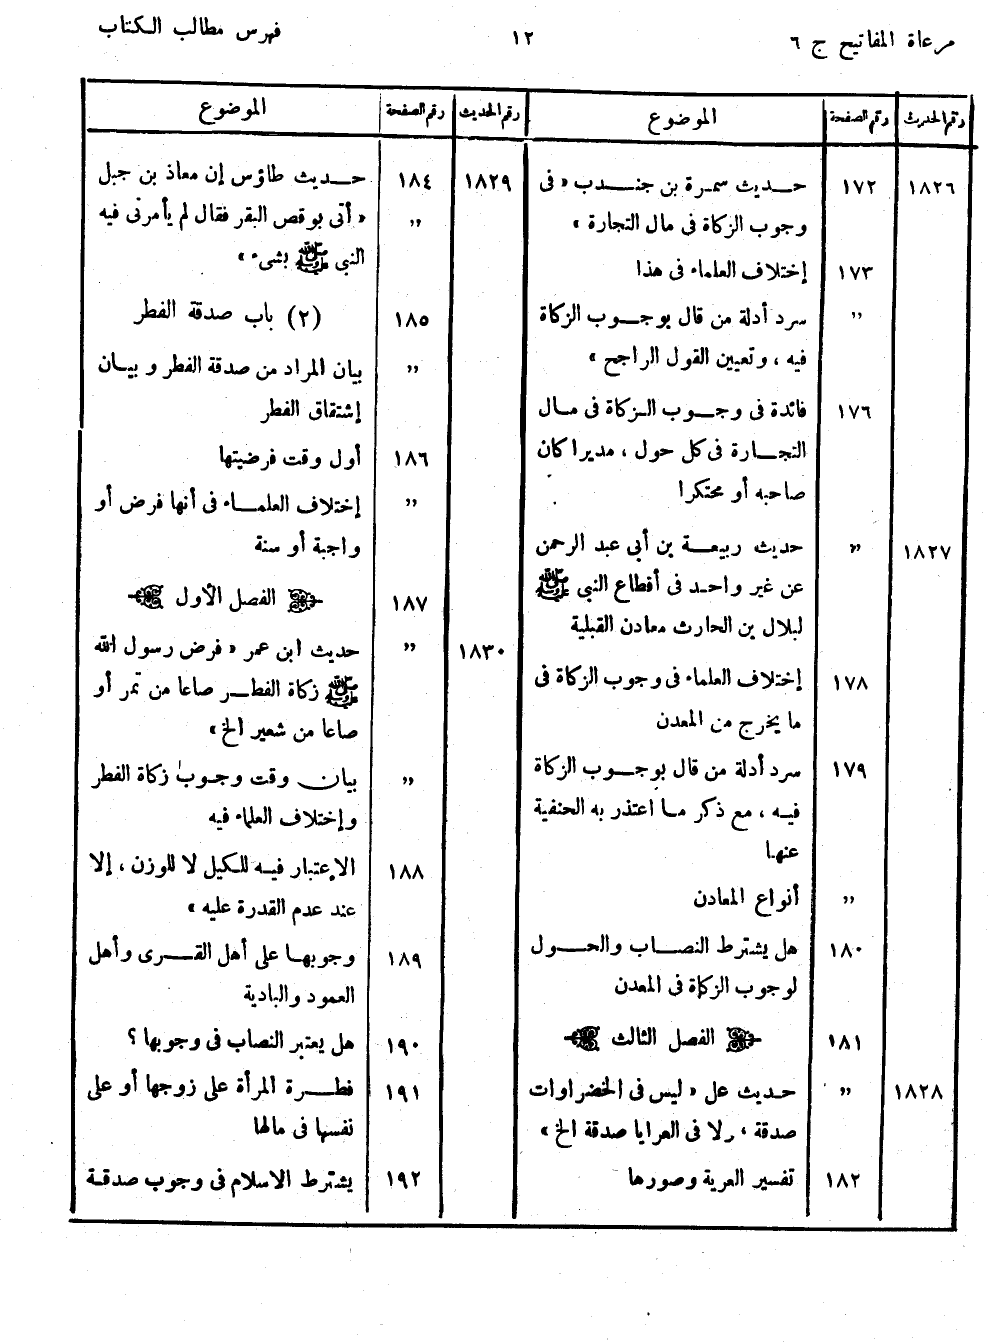 مرعاة المفاتيح ج ٦
١٢
فهرس مطالب الكتاب
رقم الحديث رقم الصفحة الموضوع
١٨٢٦ ١٧٢ حديث سمرة بن جندب « فى
وجوب الزكاة فى مال التجارة »
١٧٣ إختلاف العلماء فى هذا
,, سرد أدلة من قال بوجوب الزكاة
فيه ، وتعيين القول الراجح »
١٧٦ فائدة فى وجوب الزكاة فى مال
التجارة فى كل حول ، مديرا كان
صاحبه أو محتكرا
١٨٢٧ ,, حديث ربيعة بن أبي عبد الرحمن
عن غير واحد فى أقطاع النبي ﷺ
لبلال بن الحارث معادن القبلية
١٧٨ إختلاف العلماء فى وجوب الزكاة فى
ما يخرج من المعدن
١٧٩ سرد أدلة من قال بوجوب الزكاة
فيه ، مع ذكر ما اعتذر به الحنفية
عنها
,, أنواع المعادن
١٨٠ هل يشترط النصاب والحول
لوجوب الزكاة فى المعدن
١٨١ الفصل الثالث
١٨٢٨ ,, حديث عل « ليس فى الخضراوات
صدقة ، ولا فى العرايا صدقة الخ »
١٨٢ تفسير العرية وصورها
رقم الحديث رقم الصفحة الموضوع
١٨٢٩ ١٨٤ حديث طاؤس إن معاذ بن جبل
,, « أتى بوقص البقر فقال لم يأمرنى فيه
النبي ﷺ بشىء »
١٨٥ (٢) باب صدقة الفطر
,, بيان المراد من صدقة الفطر و بيان
إشتقاق الفطر
١٨٦ أول وقت فرضيتها
,, إختلاف العلماء فى أنها فرض أو
واجبة أو سنة
١٨٧ الفصل الأول
١٨٣٠ ,, حديث ابن عمر « فرض رسول الله
ﷺ زكاة الفطر صاعا من تمر أو
صاعا من شعير الخ »
,, بيان وقت وجوب زكاة الفطر
وإختلاف العلماء فيه
١٨٨ الإعتبار فيه للكيل لا للوزن ، إلا
عند عدم القدرة عليه »
١٨٩ وجوبها على أهل القرى وأهل
العمود والبادية
١٩٠ هل يعتبر النصاب فى وجوبها ؟
١٩١ فطرة المرأة على زوجها أو على
نفسها فى مالها
١٩٢ يشترط الاسلام فى وجوب صدقة